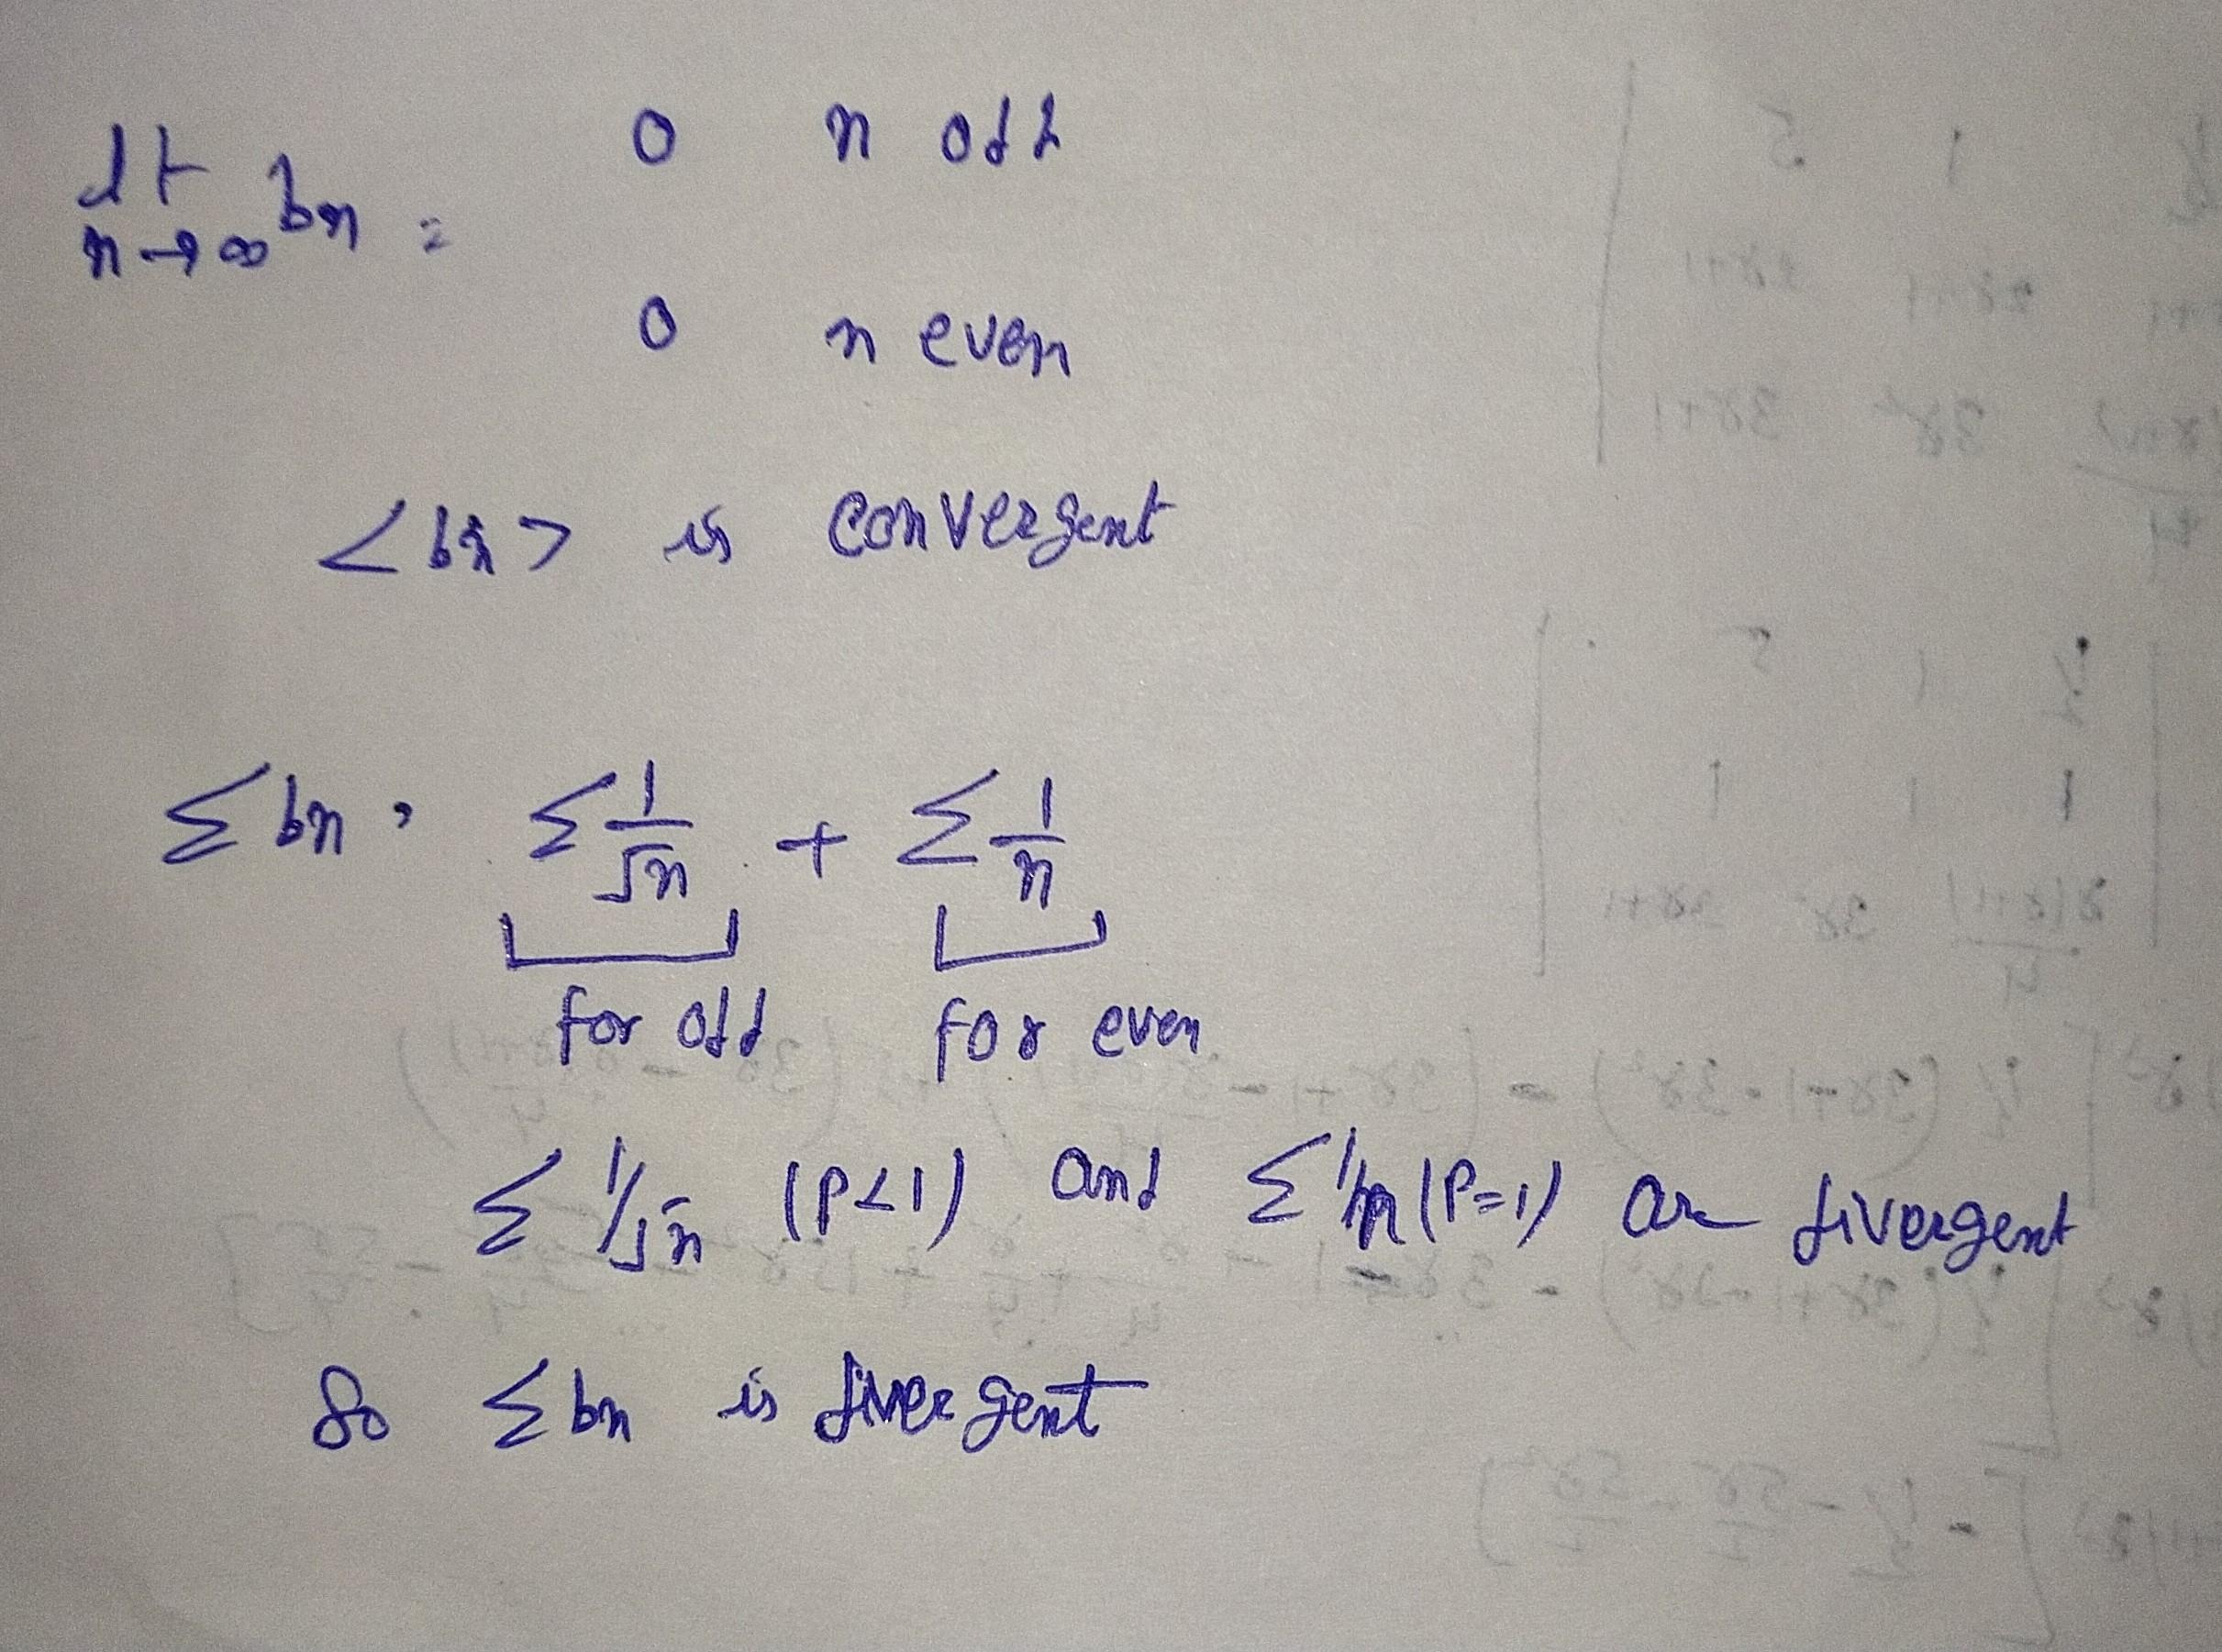 0 n odd
lt n→∞ bn =
0 n even
<bn> is convergent
Σ bn = Σ 1/√n + Σ 1/n
for odd for even
Σ 1/√n (P<1) and Σ 1/n (P=1) are divergent
So Σ bn is divergent